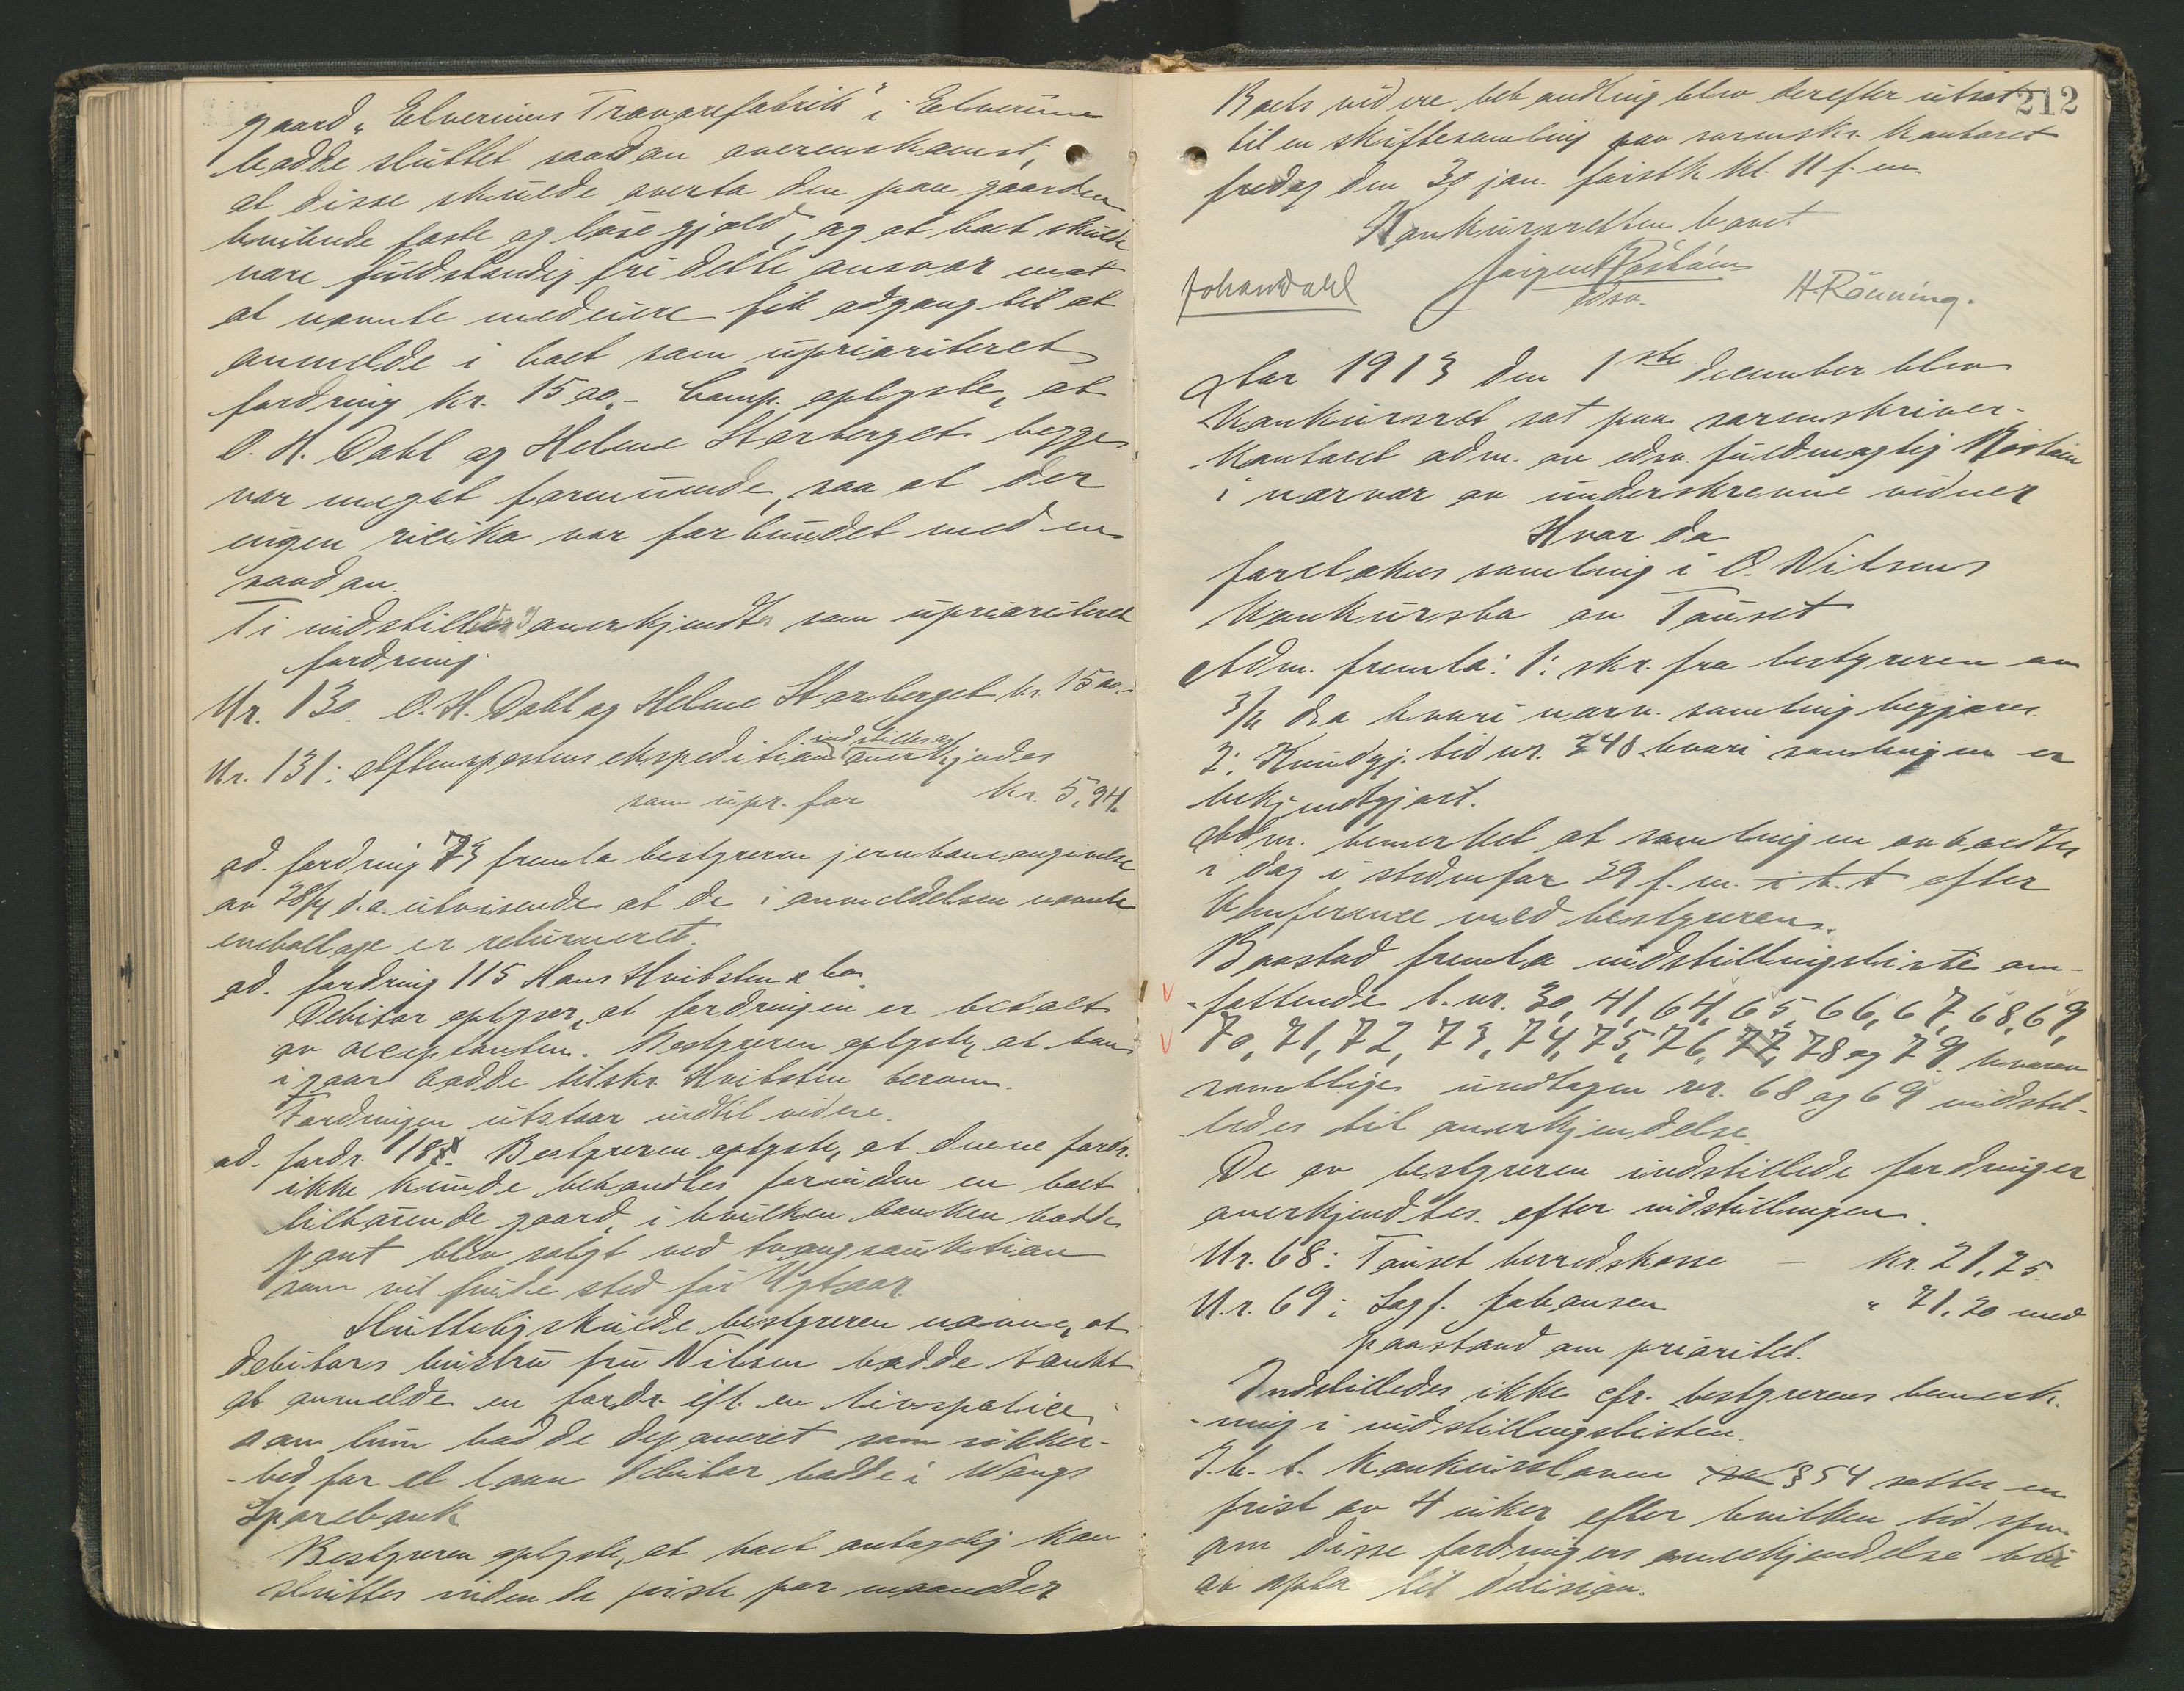 gaard „Elverums Trævarefabrik” i Elverum
hadde sluttet saadan overenskomst,
at disse skulde overta den paa gaarden
hvilende faste og løse gjæld, og at boet skulde
være fuldstændig fri dette ansvar mot
at nævnte medeiere fik adgang til at
anmelde i boet som uprioriteret
fordring kr. 1500.- Comp. oplyste, at
O. H. Dahl og Helme Storberget begge
var meget formuende, saa at der
ingen risiko var forbundet med en
saadan.
Ti indstilledes anerkjendt som uprioriteret
fordring
Nr. 130. O. H. Dahl og Helme Storberget kr. 1500.-
indstilles at
Nr. 131: Aftenpostens ekspedition anerkjendes
som upr. for kr. 5,94.
ad. fordring 73 fremla bestyreren jernbaneangivelse
av 28/4 d.a. utvisende at de i anmeldelsen nævnte
emballage er returneret.
ad. fordring 115 Hans Hvibsten & Co.
Debitor oplyser, at fordringen er betalt
av acceptanten. Bestyreren oplyste, at han
igaar hadde tilskr. Hvibsten herom.
Fordringen utstaar indtil videre.
ad. fordr. 118. Bestyreren oplyste, at denne fordr.
ikke kunde behandles forinden en boet
tilhørende gaard, i hvilken banken hadde
pant blev solgt ved tvangsauktion
som vil finde sted før Nytaar
Sluttelig skulde bestyreren nævne, at
debitors hustru fru Nilsen hadde tænkt
at anmelde en fordr. ifl. en livspolice
som hun hadde deponeret som sikker-
-hed for et laan debitor hadde i Vangs
Sparebank
Bestyreren oplyste, at boet antagelig kan
sluttes inden de første par maaneder
212
Boets videre behandling blev derefter utsat
til en skiftesamling paa sorenskr. kontoret
fredag den 30 jan. førstk. kl. 11 f.m.
Konkursretten hævet.
Johan Dahl Jørgen Røstøen H. Rønning.
edsv.
Aar 1913 den 1ste december blev
konkursret sat paa sorenskriver-
-kontoret adm. av edsv. fuldmægtig Røstøen
i nærvær av underskrevne vidner
Hvor da
foretokes samling i O. Nilsens
konkursbo av Tønset
Adm. fremla: 1: skr. fra bestyreren av
3/11 d.a hvori nærv. samling begjæres.
2: Kundgj. tid nr. 248 hvori samlingen er
bekjendtgjort.
Adm. bemerket at samlingen avholdtes
i dag i stedenfor 29 f.m. i h.t efter
konference med bestyreren.
Baastad fremla indstillingsliste om-
-fattende l. nr. 30, 41, 64, 65, 66, 67, 68, 69,
70, 71, 72, 73, 74, 75, 76, 77, 78 og 79. hvorav
samtlige undtagen nr. 68 og 69 indstil-
ledes til anerkjendelse.
De av bestyreren indstillede fordringer
anerkjendtes efter indstillingen.
Nr. 68: Tønset herredskasse - kr. 21,25
Nr. 69: Sagf. Johansen „ 71,20 med
paastand om prioritet.
Indstilledes ikke cfr. bestyrerens bemerk-
-ning i indstillingslisten.
I.h.t. konkursloven § 54 sættes en
frist av 4 uker efter hvilken tid spm
om disse fordringers anerkjendelse blir
at opta til decision.